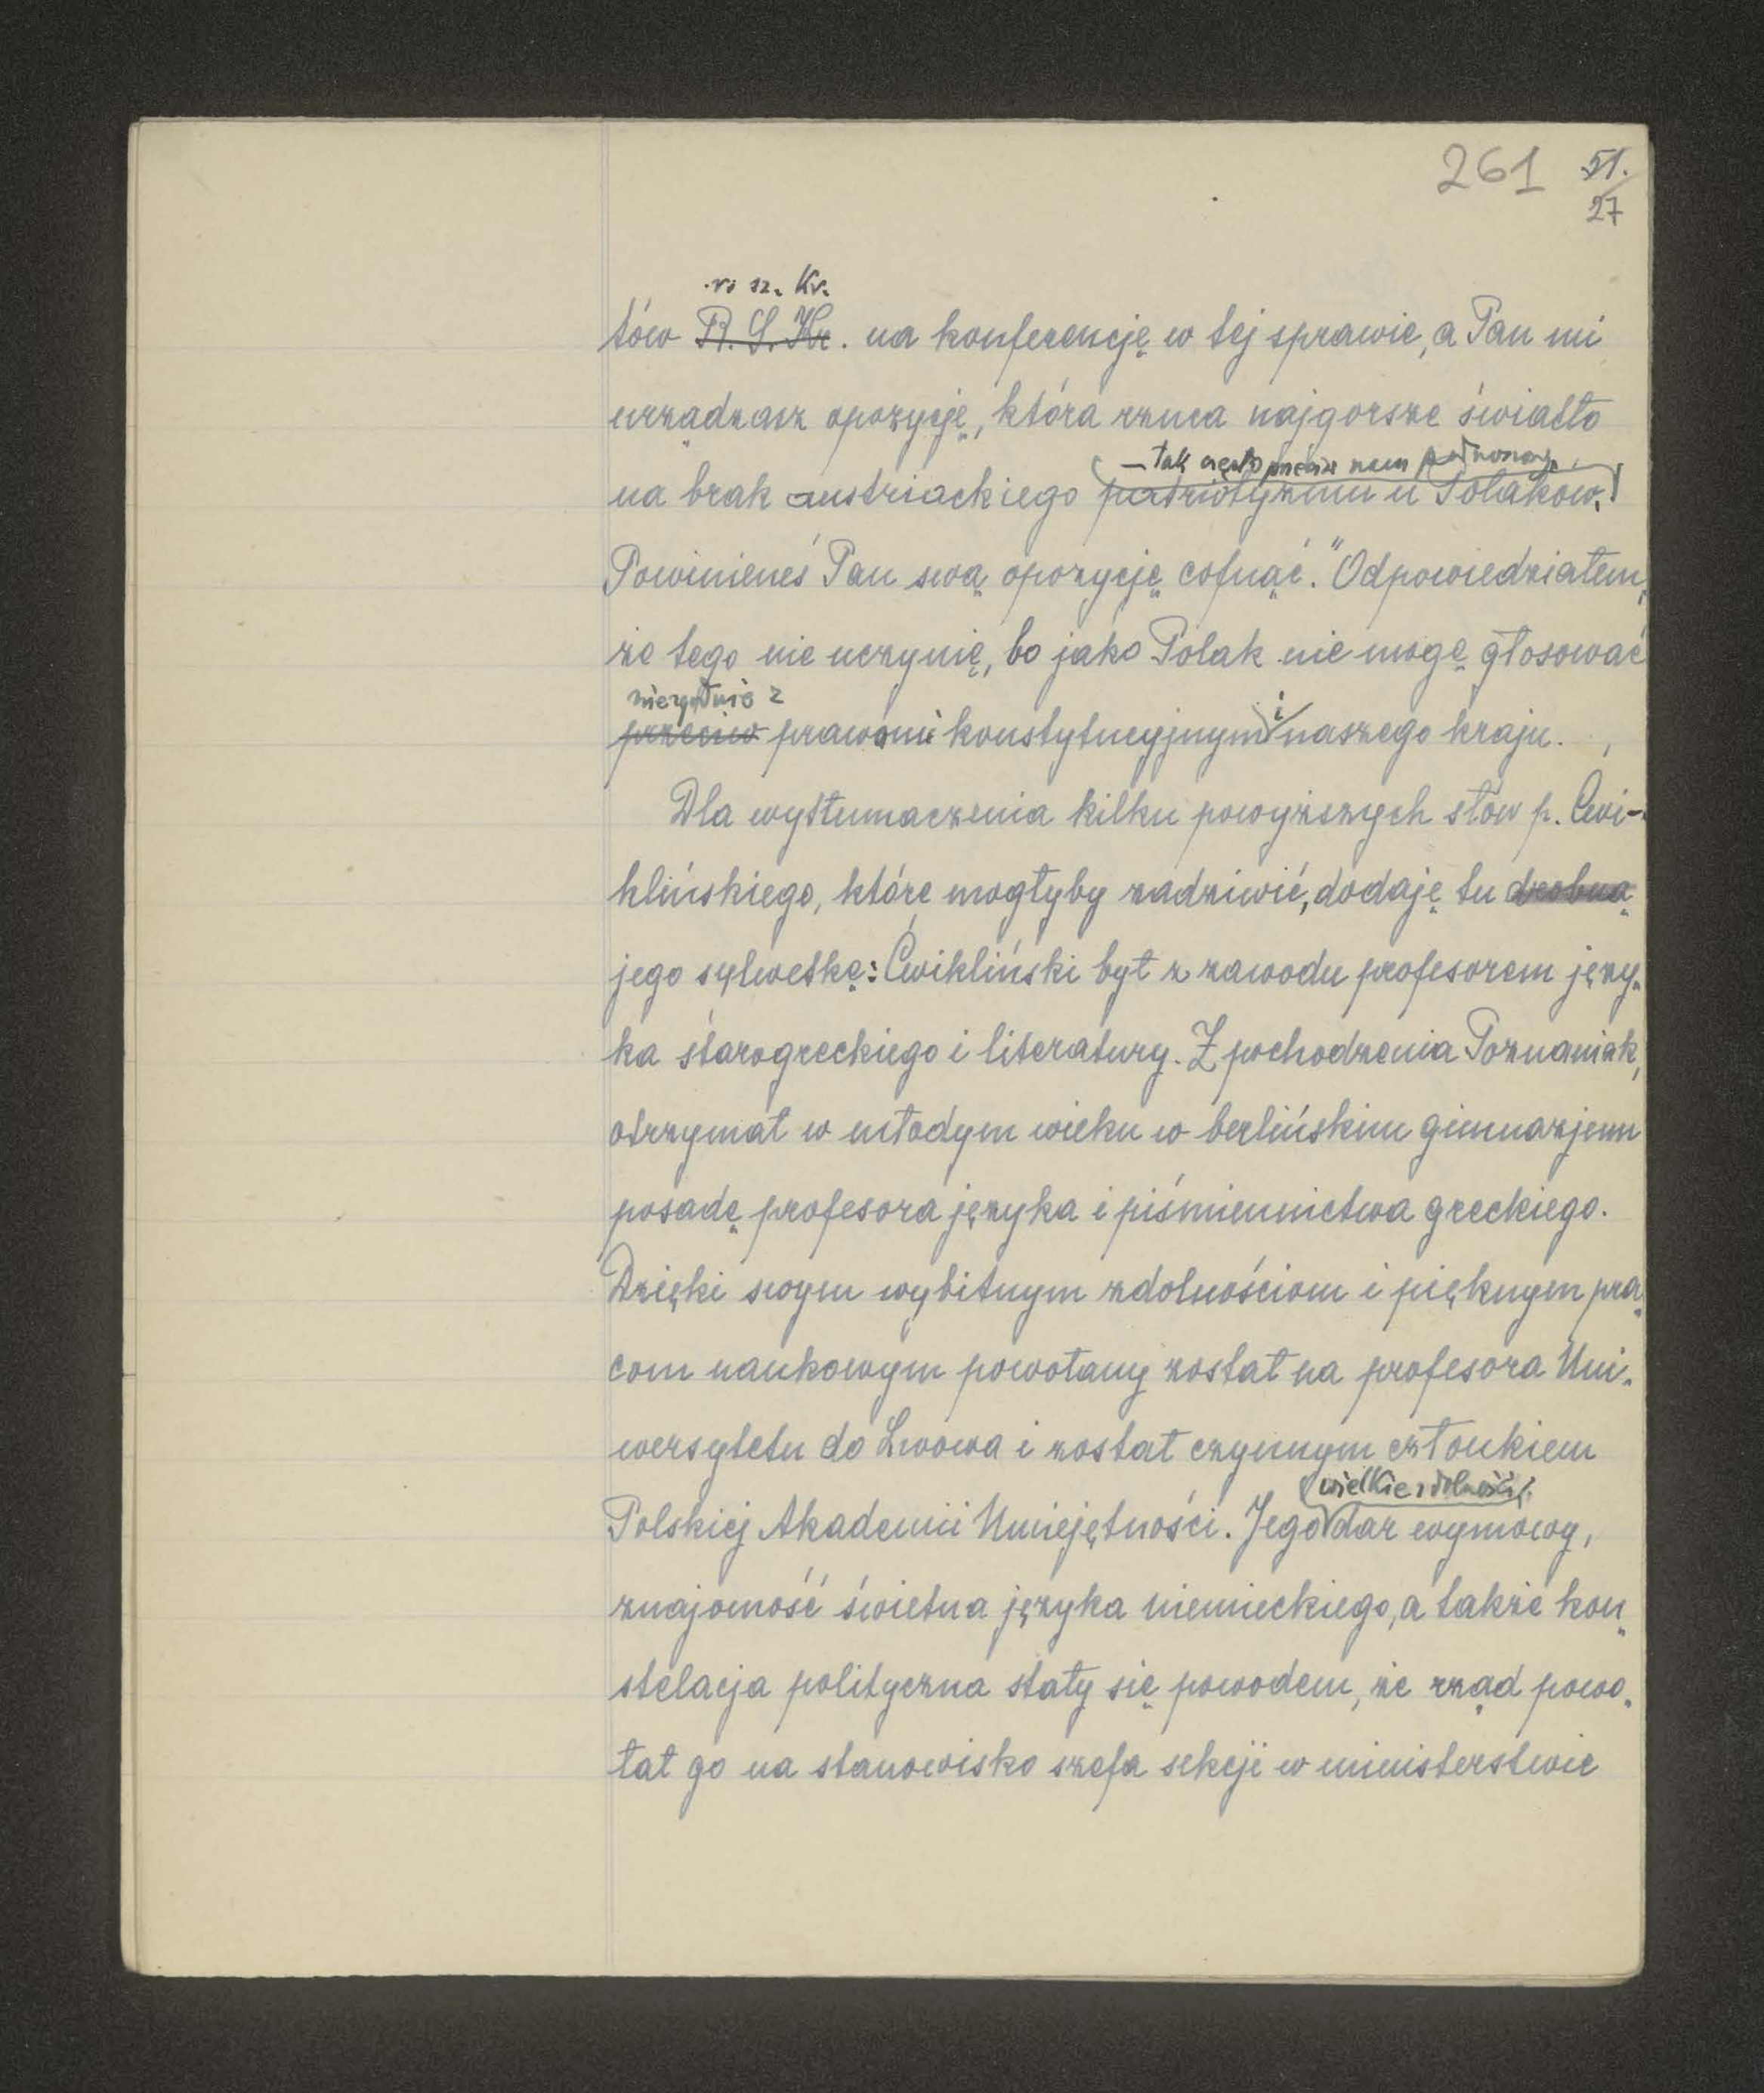 261 51.
27
r. sz. Kr.
tów R. S. Kr. na konferencję w tej sprawie, a Pan mi
urządzasz opozycję, która rzuca najgorsze światło
– tak często przeciw nam podnoszony
na brak austriackiego patriotyzmu u Polaków.
Powinieneś Pan swą opozycję cofnąć." Odpowiedziałem,
że tego nie uczynię, bo jako Polak nie mogę głosować
niezgodnie z
przeciw prawami konstytucyjnymi naszego kraju.
Dla wytłumaczenia kilku powyższych słów p. Ćwi-
klińskiego, które mogłyby zadziwić, dodaję tu drobną
jego sylwetkę: Ćwikliński był z zawodu profesorem języ-
ka starogreckiego i literatury. Z pochodzenia Poznaniak,
otrzymał w młodym wieku w berlińskim gimnazjum
posadę profesora języka i piśmiennictwa greckiego.
Dzięki swym wybitnym zdolnościom i pięknym pra-
com naukowym powołany został na profesora Uni-
wersytetu do Lwowa i został czynnym członkiem
wielkie zdolności,
Polskiej Akademii Umiejętności. Jego dar wymowy,
znajomość świetna języka niemieckiego, a także kon-
stelacja polityczna stały się powodem, że rząd powo-
łał go na stanowisko szefa sekcji w ministerstwie